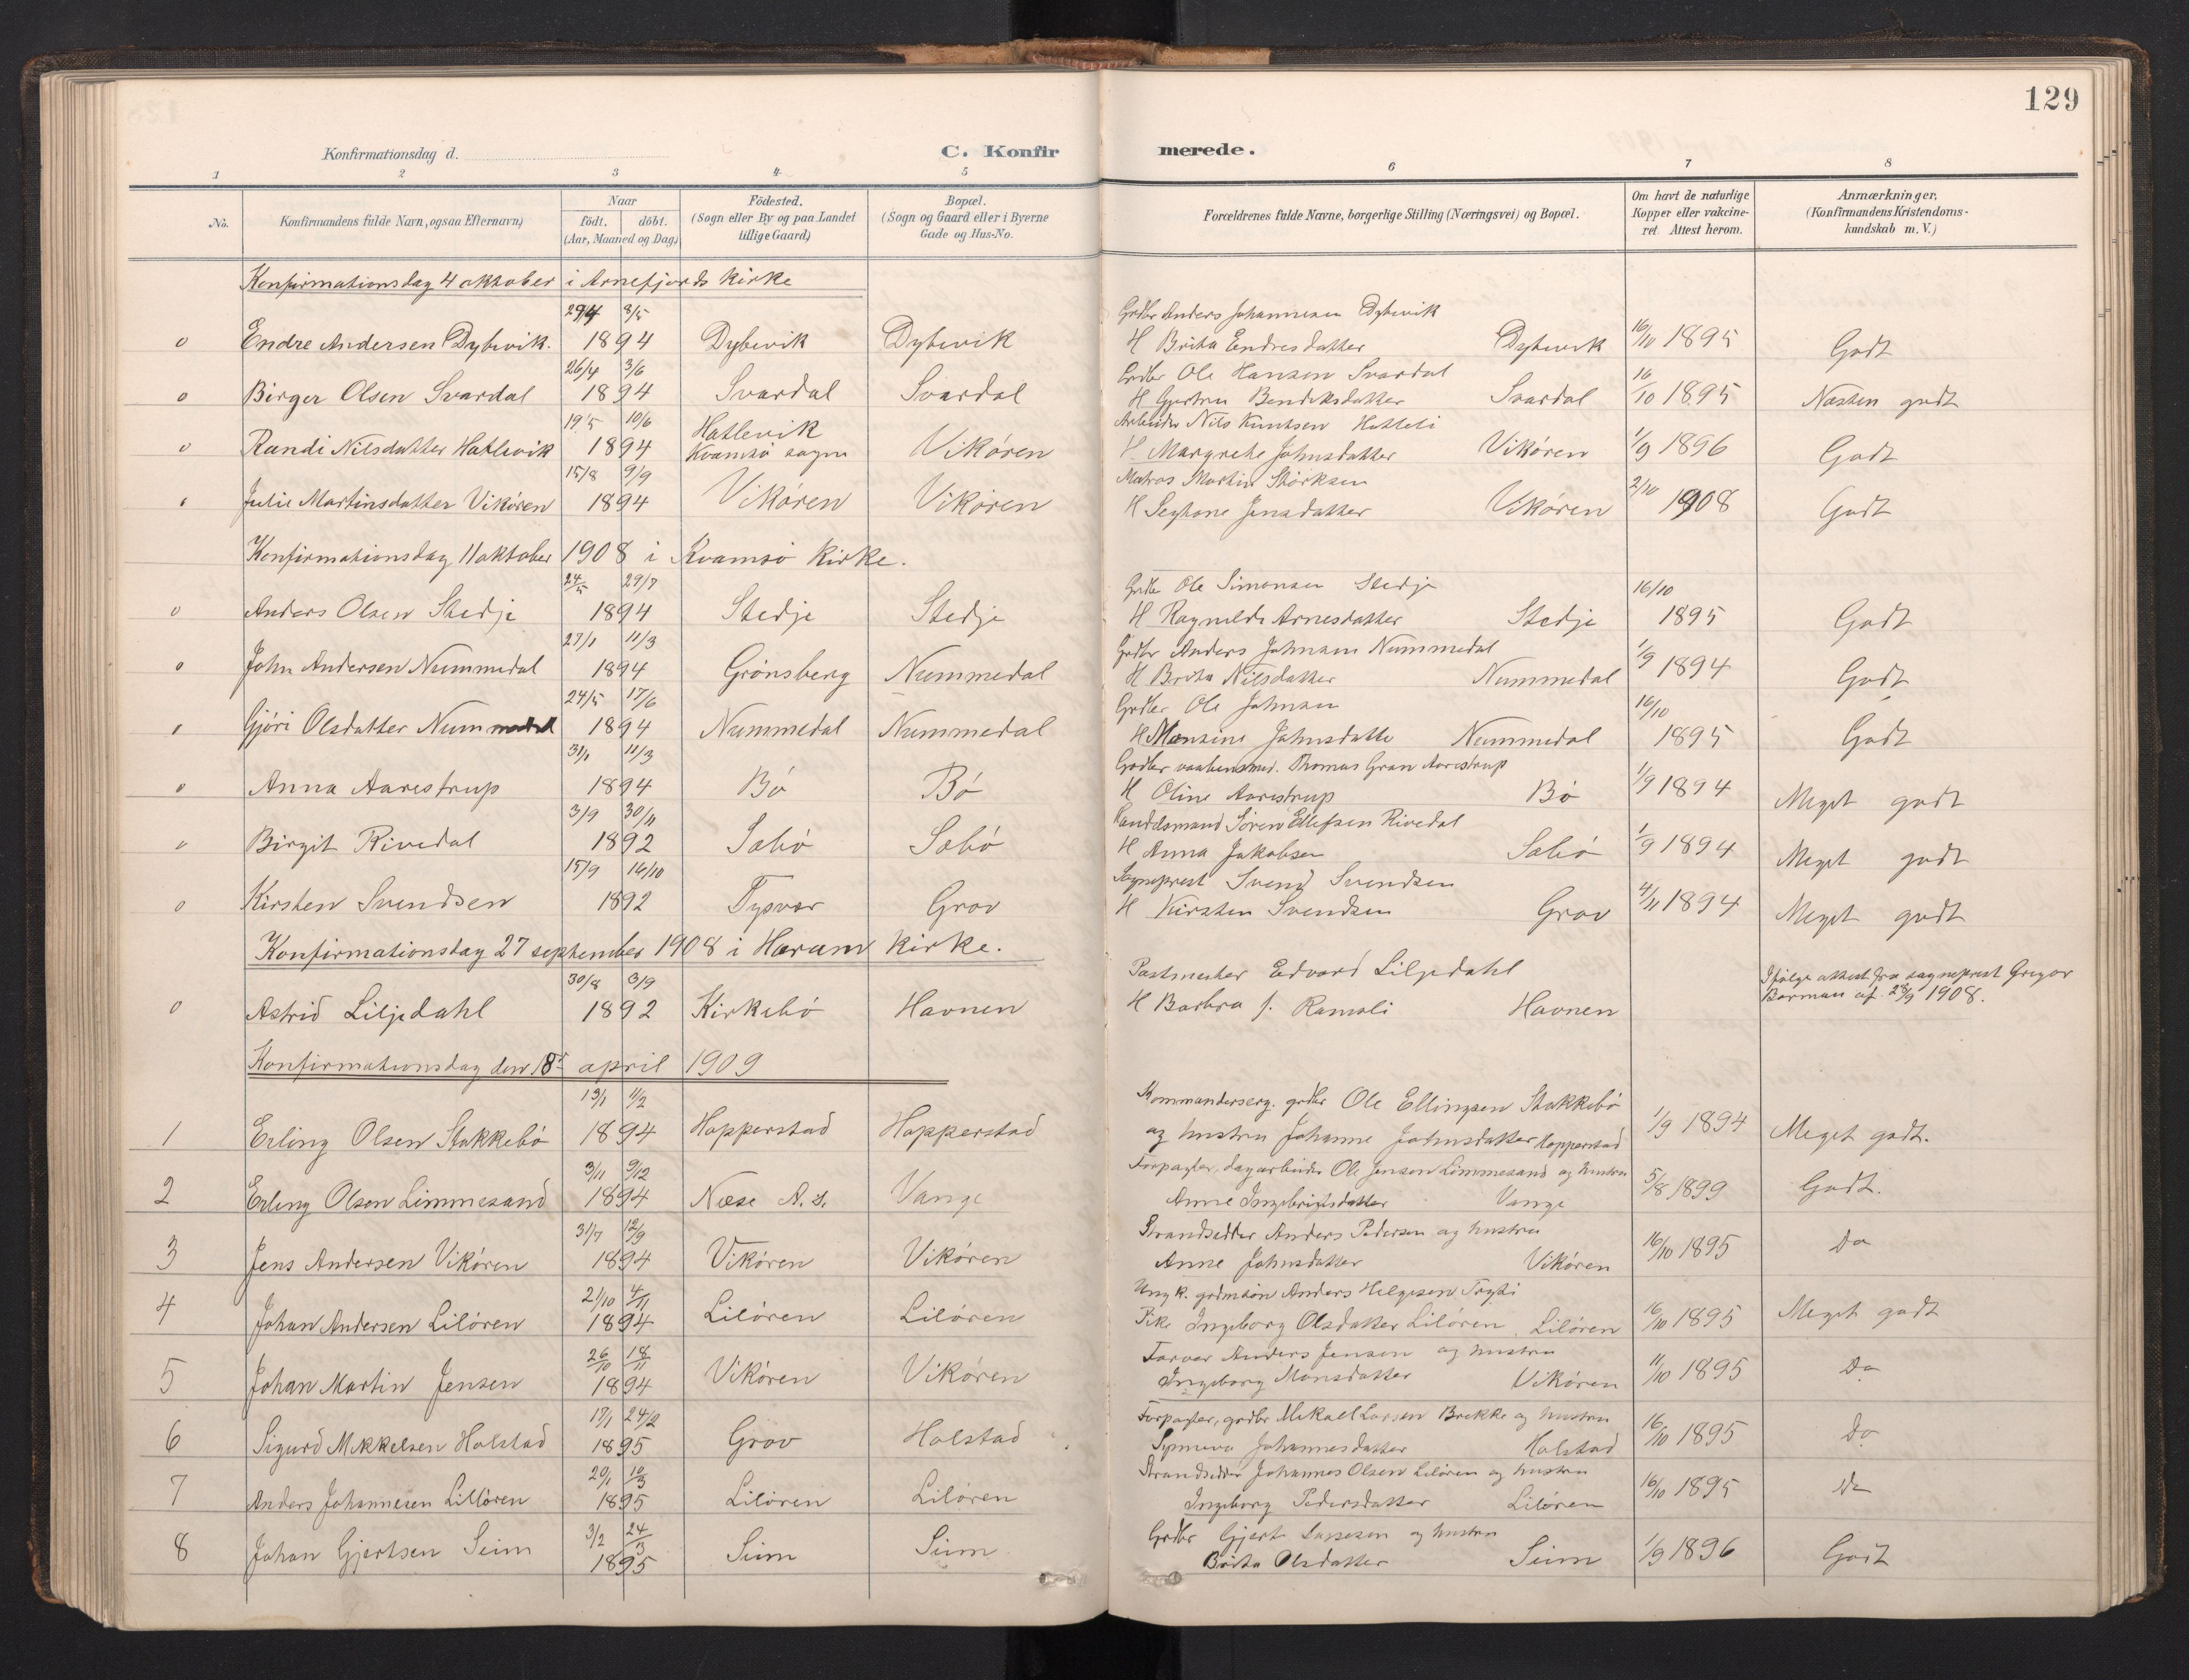 129
Konfirmationsdag d.
C. Konfirmerede.
1 2 3 4 5 6 7 8
No.
Konfirmandens fulde Navn, ogsaa Efternavn)
Naar
födt. döbt.
(Aar, Maaned og Dag)
Födested.
(Sogn eller By og paa Landet
tillige Gaard)
Bopæl.
(Sogn og Gaard eller i Byerne
Gade og Hus-No.
Forældrenes fulde Navne, borgerlige Stilling (Næringsvei) og Bopæl.
Om havt de naturlige
Kopper eller vakcine-
ret. Attest herom.
Anmærkninger,
(Konfirmandens Kristendoms-
kundskab m. V.)
Konfirmationsdag 4 oktober i Arnefjords Kirke
29/4 8/5 Grdbr Anders Johannesen Dybevik
o Endre Andersen Dybevik. 1894 Dybevik Dybevik H Brita Endresdatter Dybevik 16/10 1895 Godt
26/4 3/6 Grdbr Ole Hansen Svardal
o Birger Olsen Svardal 1894 Svardal Svardal H Gjertru Bendiksdatter Svardal 16/10 1895 Næsten godt
19/5 10/6 Hatlevik Arbeider Nils Knutsen
o Randi Nilsdatter Hatlevik 1894 Kvamsö sogn Vikören H Margrete Johnsdatter Vikören 1/9 1896 Godt
15/8 9/9 Matros Martin Störksen
Julie Martinsdatter Vikören 1894 Vikören Vikören H Jensdatter Vikören 2/10 1908 Godt
Konfirmationsdag 11 oktober 1908 i Kvamsö Kirke.
24/5 29/7 Grdbr Ole Simonsen Stedje
o Anders Olsen Stedje 1894 Stedje Stedje H Ragnilde Arnesdatter Stedje 16/10 1895 Godt
27/1 11/3 Grdbr Anders Johnsen Nummedal
o John Andersen Nummedal 1894 Grönsberg Nummedal H Brita Nilsdatter Nummedal 1/9 1894 Godt
24/5 17/6 Grdbr Ole Johnsen
Gjöri Olsdatter Nummedal 1894 Nummedal Nummedal H Monsine Johnsdatter Nummedal 16/10 1895 Godt
31/1 11/3 Grdbr vaabensmed. Thomas Gran Aarestrup
o Anna Aarestrup 1894 Bö Bö H Oline Aarestrup Bö 1/9 1894 Meget godt
3/9 30/11 Landelsmand Sören Ellefsen Rivedal
Birgit Rivedal 1892 Sæbö Sæbö H Anna Jakobsen Sæbö 1/9 1894 Meget godt
15/9 16/10 Sogneprest Svend Svendsen
o Kirsten Svendsen 1892 Tysvær Grov H Kirsten Svendsen Grov 4/11 1894 Meget godt
Konfirmationsdag 27 september 1908 i Haram Kirke.
30/8 3/9 Postmester Edvard Liljedahl Ifölge attest fra sogneprest Gregor
o Astrid Liljedahl 1892 Kirkebö Havnen H Barbra f. Ramsli Havnen Borman af 28/9 1908.
Konfirmationsdag den 18de april 1909
13/1 11/2 Kommanderserg. grdbr Ole Ellingsen Stakkebö
1 Erling Olsen Stakkebö 1894 Hopperstad Hopperstad og hustru Johanne Johnsdatter Hopperstad 1/9 1894 Meget godt.
3/11 9/12 Forpagter, dagarbeider Ole Jensen Limmesand og hustru
2 Erling Olsen Limmesand 1894 Næse A. s. Vange Anne Ingebrigtsdatter Vange 5/8 1899 Godt.
31/7 12/9 Strandsidder Anders Pedersen og hustru
3 Jens Andersen Vikören 1894 Vikören Vikören Anne Johnsdatter Vikören 16/10 1895 Do
21/10 4/11 Ungk. grdmsön Anders Helgesen Tryti
4 Johan Andersen Lilören 1894 Lilören Lilören Pike Ingeborg Olsdatter Lilören, Lilören 16/10 1895 Meget godt
26/10 18/11 Farver Anders Jensen og hustru
5 Johan Martin Jensen 1894 Vikören Vikören Ingeborg Monsdatter Vikören 11/10 1895 Do
17/1 24/2 Forpagter, grdbr Mikael Larsen Brekke og hustru
6 Sigurd Mikkelsen Holstad 1895 Grov Holstad Synneva Johannesdatter Holstad 16/10 1895 Do
20/1 10/3 Strandsidder Johannes Olsen Lilören og hustru
7 Anders Johannesen Lillören 1895 Lilören Lilören Ingeborg Pedersdatter Lilören 16/10 1895 Do
3/2 24/3 Grdbr Gjert Lassesen og hustru
8 Johan Gjertsen Seim 1895 Seim Seim Brita Olsdatter Seim 1/9 1896 Godt